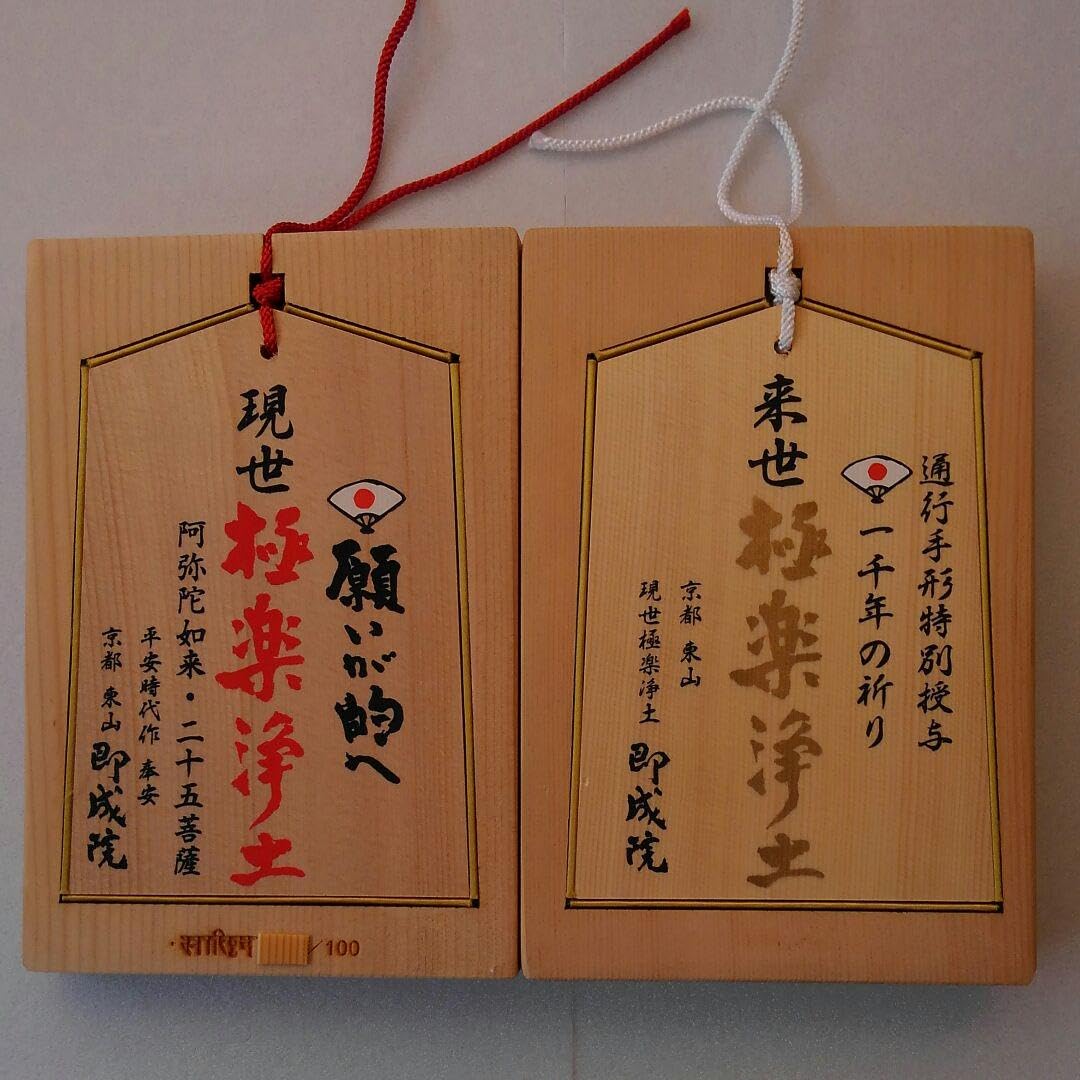 現世
極楽浄土
願いが的へ
阿弥陀如来・二十五菩薩
平安時代作 奉安
京都 東山 即成院
/100
通行手形特別授与
一千年の祈り
来世
極楽浄土
京都 東山
現世極楽浄土 即成院